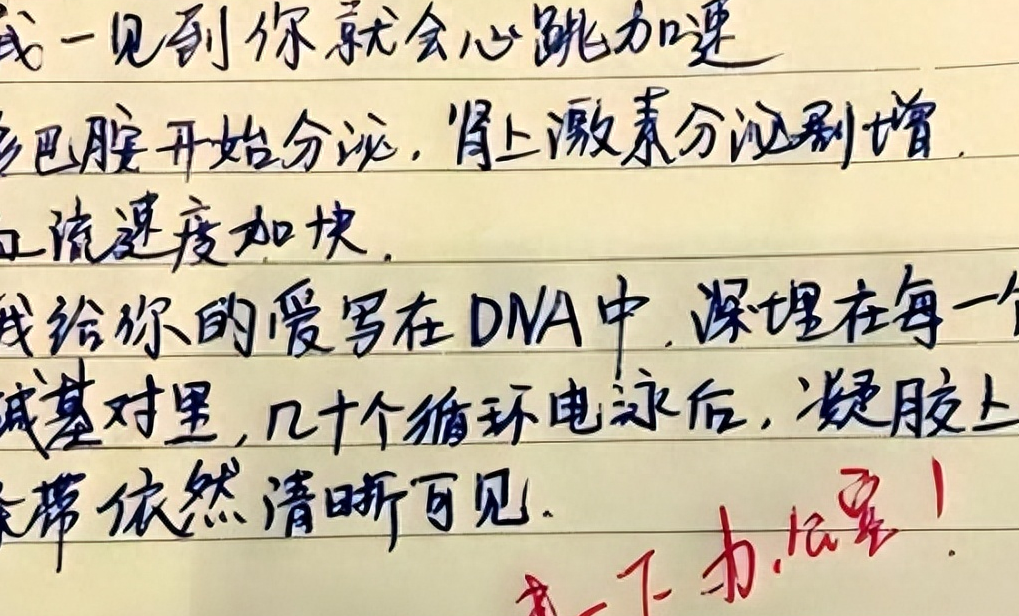 我一见到你就会心跳加速
多巴胺开始分泌，肾上激素分泌剧增，
血流速度加快。
我给你的爱写在DNA中，深埋在每一个
碱基对里，几十个循环电泳后，凝胶上
条带依然清晰可见。
来一下办公室！